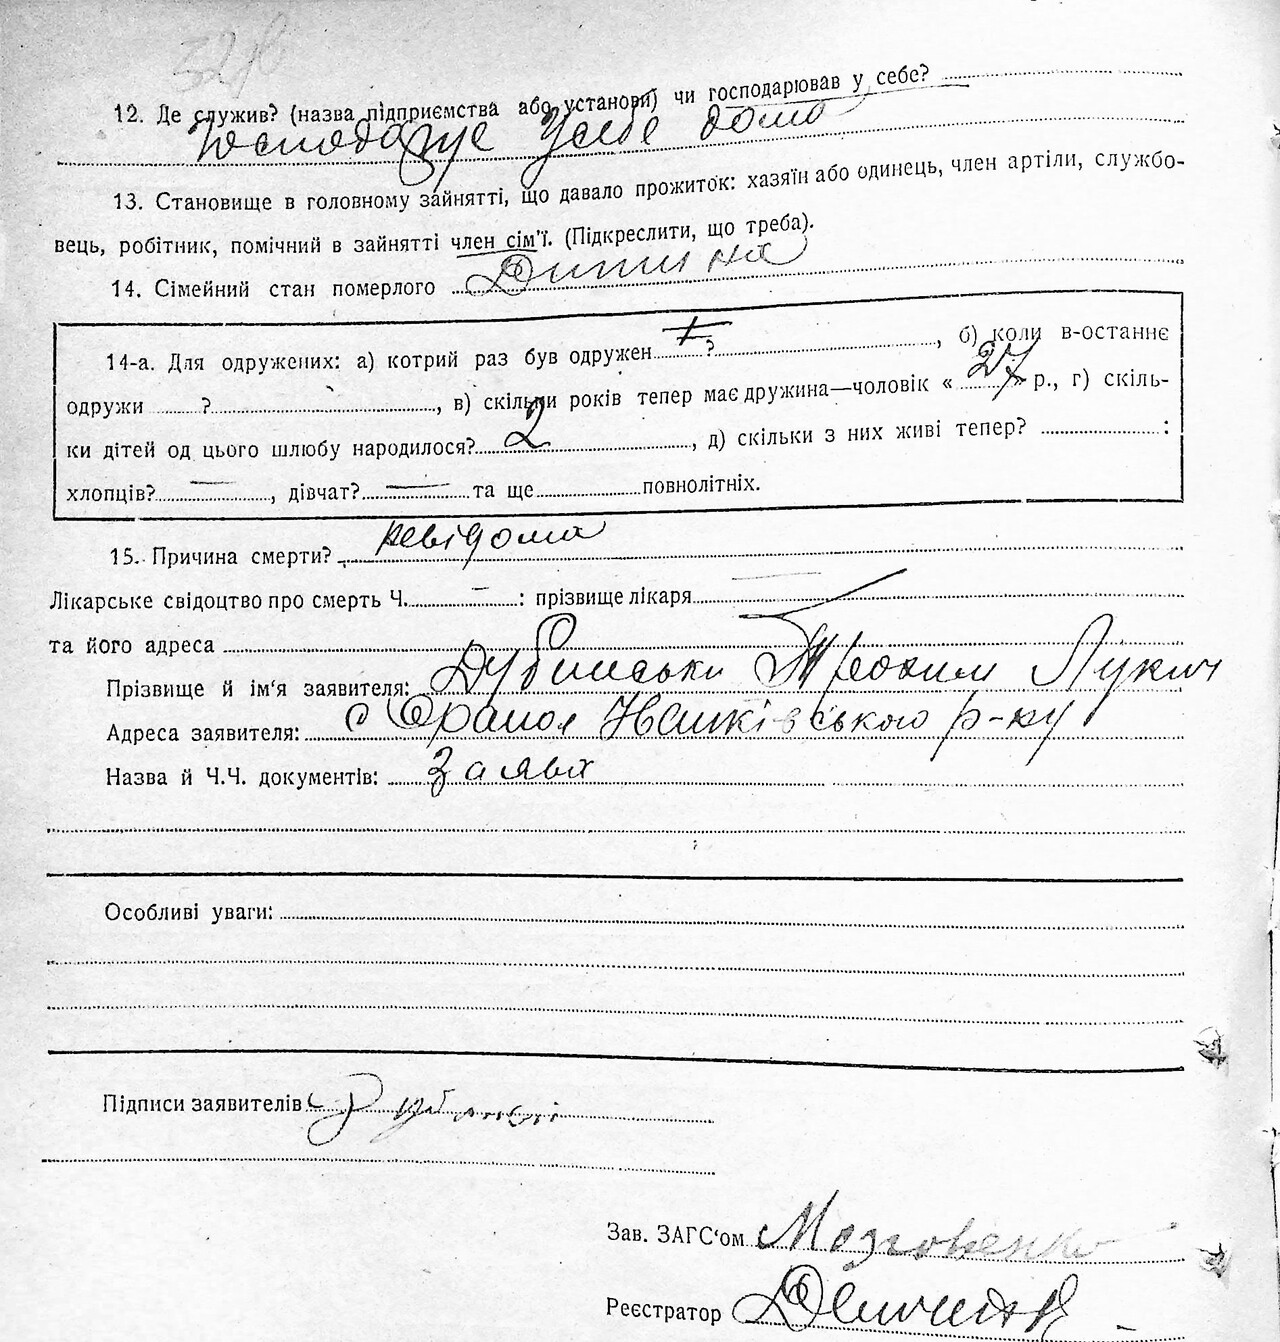 12. Де служив? (назва підприємства або установи) чи господарював у себе?
Господарує у себе дома
13. Становище в головному зайнятті, що давало прожиток: хазяїн або одинець, член артіли, службо-
вець, робітник, помічний в зайнятті член сім'ї. (Підкреслити, що треба).
14. Сімейний стан померлого Дитина
14-а. Для одружених: а) котрий раз був одружен ? , б) коли в-останнє
одружи ? , в) скільки років тепер має дружина—чоловік « 27 » р., г) скіль-
ки дітей од цього шлюбу народилося? 2 , д) скільки з них живі тепер? :
хлопців? — , дівчат? — та ще повнолітніх.
15. Причина смерти? невідома
Лікарське свідоцтво про смерть Ч. — : прізвище лікаря —
та його адреса
Прізвище й ім'я заявителя: Дубинськи Трохим Лукич
Адреса заявителя: с р-ну
Назва й Ч.Ч. документів: заява
Особливі уваги:
Підписи заявителів
Зав. ЗАГС'ом Мозговенко
Реєстратор